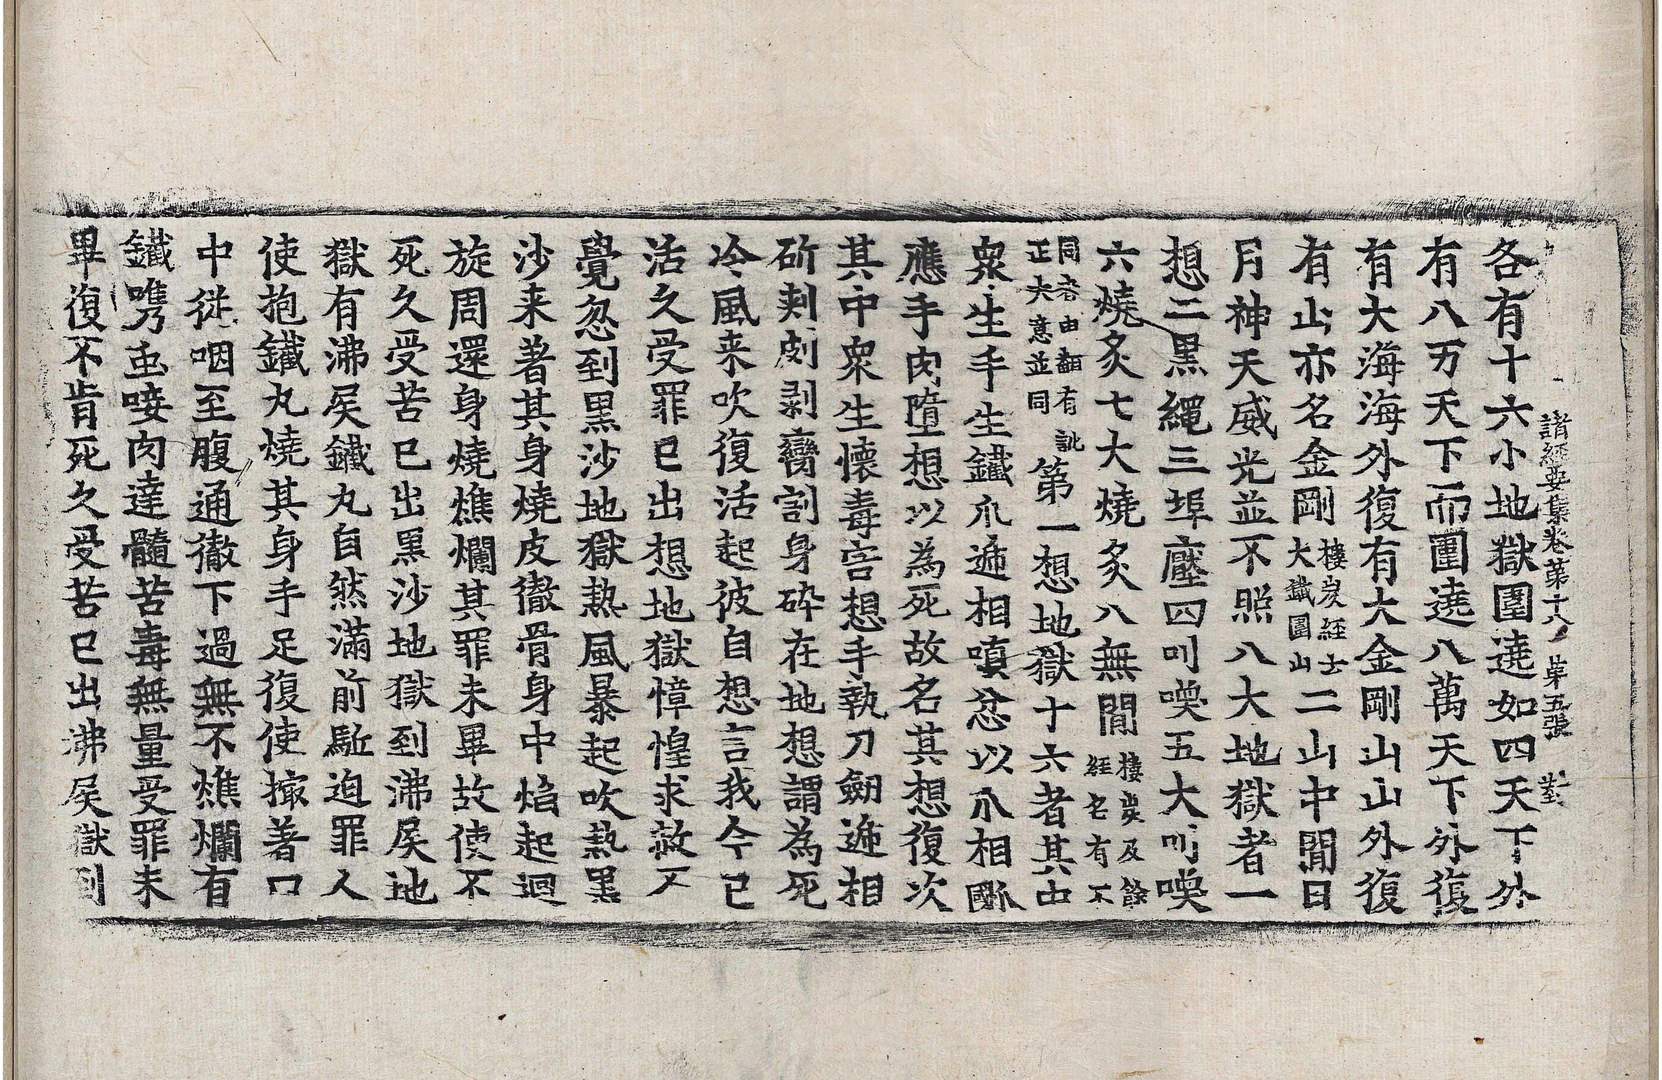 諸經要集卷第十八 第五張 對
各有十六小地獄圍遶如四天下外
有八万天下而圍遶八萬天下外復
有大海海外復有大金剛山山外復
有山亦名金剛樓炭經云大鐵圍山二山中閒日
月神天威光並不照八大地獄者一
想二黑繩三埠壓四叫喚五大叫喚
六燒炙七大燒炙八無閒樓炭及餘經名有不
同者由翻有訛正大意並同第一想地獄十六者其中
衆生手生鐵爪遞相嗔忿以爪相𤔩
應手肉墮想以為死故名其想復次
其中衆生懷毒害想手執刀劒遞相
斫刾剫剥臠割身碎在地想謂為死
冷風来吹復活起彼自想言我今已
活久受罪已出想地獄慞惶求救不
覺忽到黑沙地獄熱風暴起吹熱黑
沙来著其身燒皮徹骨身中焰起迴
旋周還身燒燋爛其罪未畢故使不
死久受苦已出黑沙地獄到沸屎地
獄有沸屎鐵丸自然滿前駈迫罪人
使抱鐵丸燒其身手足復使撮著口
中從咽至腹通徹下過無不燋爛有
鐵㗱虫唼肉達髓苦毒無量受罪未
畢復不肯死久受苦已出沸屎獄到